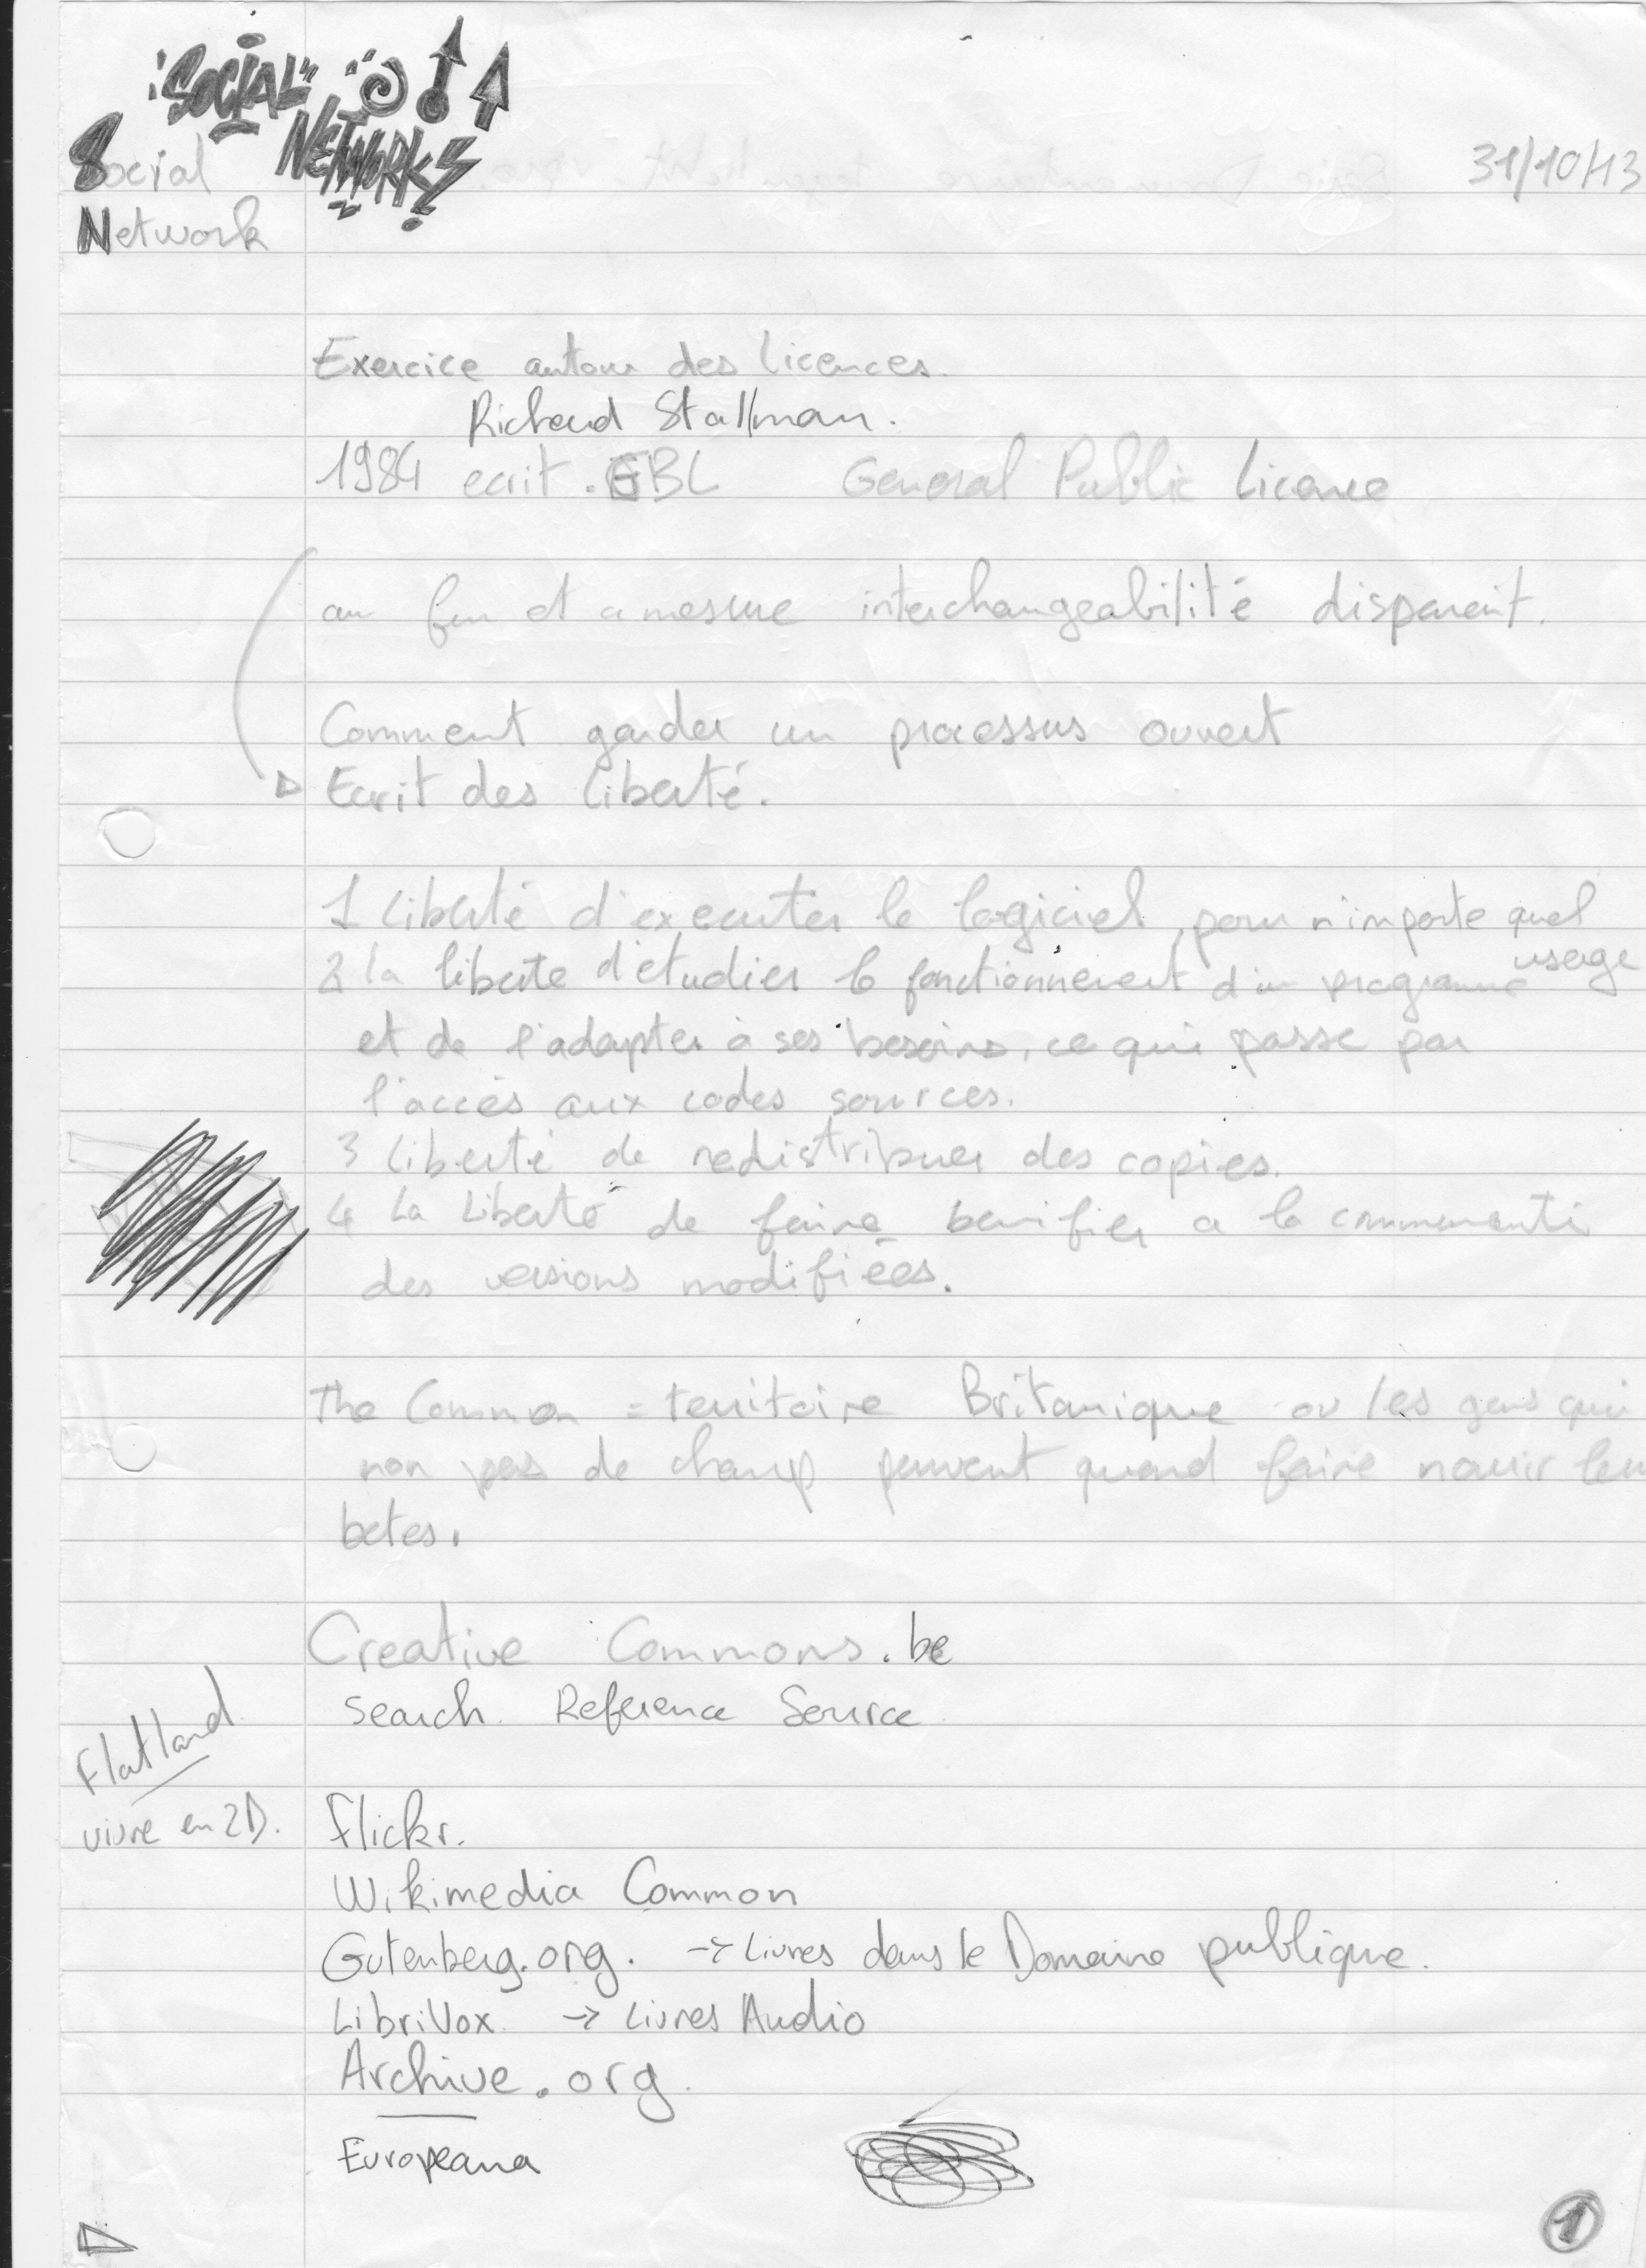 SOCIAL
NETWORKS
Social
Network
31/10/13
Exercice autour des licences.
Richard Stallman.
1984 ecrit . GBL General Public Licence
au fur et a mesure interchangeabilité disparait.
Comment garder un processus ouvert
Ecrit des liberté.
1 Liberté d'executer le logiciel, pour n'importe quel
usage
2 la liberte d'étudier le fonctionnement d'un programme
et de l'adapter à ses besoins, ce qui passe par
l'accès aux codes sources.
3 liberté de redistribuer des copies.
4 La Liberté de faire benifier a la communauté
des versions modifiées.
The Common = territoire Britanique ou les gens qui
non pas de champ peuvent quand faire nourir leur
betes.
Creative Commons.be
search. Reference Source
Flatland
vivre en 2D.
Flickr.
Wikimedia Common
Gutenberg.org. -> Livres dans le Domaine publique.
LibriVox -> Livres Audio
Archive.org
Europeana
1